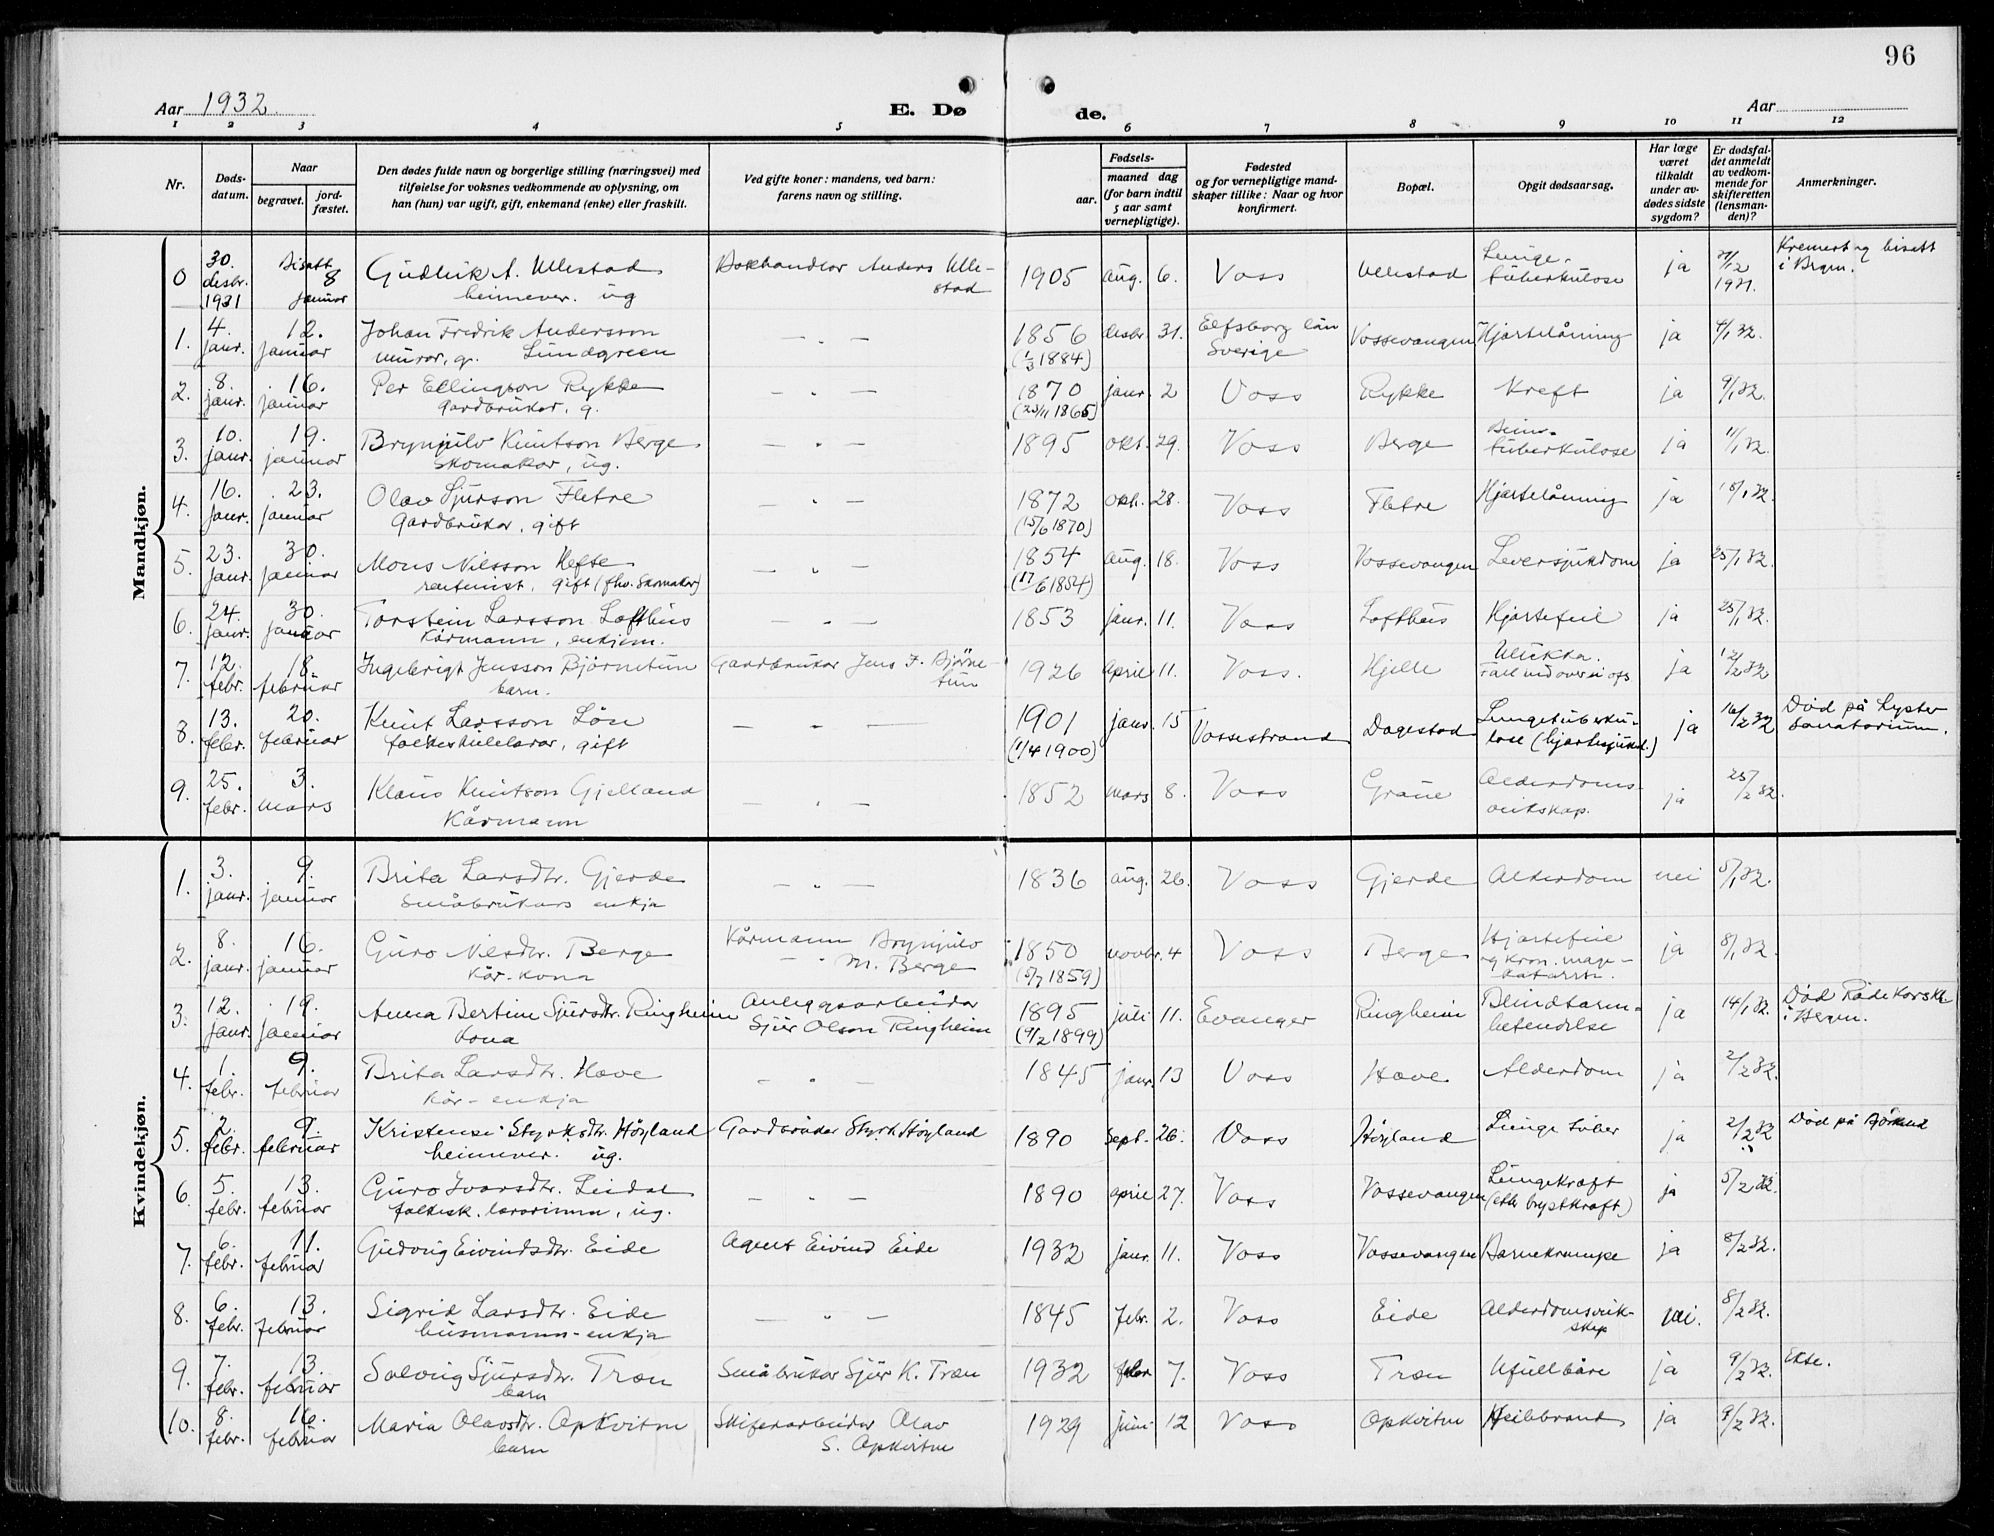 96
Aar 1932
E. Dø
de.
Aar
1 2 3 4 5 6 7 8 9 10 11 12
Nr.
Døds-
datum.
Naar
begravet.
jord-
fæstet.
Den dødes fulde navn og borgerlige stilling (næringsvei) med
tilføielse for voksnes vedkommende av oplysning, om
han (hun) var ugift, gift, enkemand (enke) eller fraskilt.
Ved gifte koner: mandens, ved barn:
farens navn og stilling.
Fødsels-
aar.
maaned dag
(for barn indtil
5 aar samt
vernepligtige).
Fødested
og for vernepligtige mand-
skaper tillike: Naar og hvor
konfirmert.
Bopæl.
Opgit dødsaarsag.
Har læge
været
tilkaldt
under av-
dødes sidste
sygdom?
Er dødsfal-
det anmeldt
av vedkom-
mende for
skifteretten
(lensman-
den)?
Anmerkninger.
Mandkjøn.
0 30. desbr. 1931 Bisatt 8 januar Gudleik A. Ullestad Bokhandlar Anders Ulle-
heimever. ug stad
1905 aug. 6. Voss Ullestad Lunge-
tuberkulose ja 31/12 1931. Kremert og bisett
i Brgn.
1. 4. janr. 12. januar Johan Fredrik Andersson
murar, g. Lundgreen — „ —
1856 (1/3 1884) desbr 31. Elfsborg län
Sverige Vossevangen Hjartelåming ja 4/1 32.
2. 8. janr. 16. januar Per Ellingson Rykke
Gardbrukar, g. — „ —
1870 (23/11 1865) janr. 2 Voss Rykke Kreft ja 9/1 32.
3. 10. janr. 19. januar Brynjulv Knutson Berge
Skomakar, ug. — „ —
1895 okt. 29. Voss Berge
tuberkulose ja 11/1 32.
4. 16. janr. 23. januar Olav Sjurson Fletre
Gardbrukar, gift — „ —
1872 (15/6 1870) okt. 28. Voss Fletre Hjartelåming ja 18/1 32.
5. 23. janr. 30. januar Mons Nilsson Hefte
rentenist, gift (fhv. Skomakar) — „ —
1854 (17/6 1854) aug. 18. Voss Vossevangen Leversjukdom ja 25/1 32.
6. 24. janr. 30. januar Torstein Larsson Lofthus
Kårmann, enkjem. — „ —
1853 janr. 11. Voss Lofthus Hjartefeil ja 25/1 32.
7. 12. febr. 18. februar Ingebrigt Jensson Björnetun Gardbrukar Jens F. Bjørne-
barn. tun
1926 april 11. Voss. Hjelle Ulukka.
ja 12/2 32
8. 13. febr. 20. februar Knut Larsson Lön
folkeskulelærar, gift — „ —
1901 (1/4 1900) janr. 15 Vossestrand Dagestad Lungetuberku-
lose (hjartesjukd.) ja 16/2 32 Død på Lyster
sanatorium.
9. 25. febr. 3. mars Klaus Knutson Gjelland
Kårmann — „ —
1852 mars 8. Voss Graue Alderdoms-
veikskap. ja 25/2 32.
Kvindekjøn.
1. 3. janr. 9. januar Brita Larsdtr. Gjerde
Småbrukars enkja — „ —
1836 aug. 26. Voss Gjerde Alderdom nei 5/1 32.
2. 8. janr. 16. januar Guro Nilsdtr. Berge Kårmann Brynjulv
Kår-kona M. Berge
1850 (5/7 1859) novbr. 4 Voss Berge Hjartefeil
og kron. mage-
katarrh. ja 8/1 32.
3. 12. janr. 19. januar Anna Bertine Sjursdtr. Ringheim Anleggsarbeidar
kona Sjur Olson Ringheim
1895 (9/2 1899) juli 11. Evanger Ringheim Blindtarm-
betendelse ja 14/1 32. Död Rödekorskl.
i Bergen.
4. 1. febr. 9. februar Brita Larsdtr. Hæve
Kår-enkja — „ —
1845 janr. 13 Voss Hæve Alderdom ja 2/2 32.
5. 2. febr. 9. februar Kristense Styrksdtr. Höyland Gardbrukar Styrk Höyland
heimever. ug.
1890 Sept. 26. Voss Höyland Lunge tuber ja 2/2 32 Död på
6. 5. febr. 13. februar Guro Ivarsdtr. Leidal
folkesk. lærarinna, ug. — „ —
1890 april 27. Voss Vossevangen Lungekraft
(etter brystkraft) ja 5/2 32.
7. 6. febr. 11. februar Gudvig Eivindsdtr. Eide Agent Eivind Eide
1932 janr. 11. Voss Vossevangen Barnekrampe ja 8/2 32.
8. 6. febr. 13. februar Sigrid Larsdtr. Eide
husmanns-enkja — „ —
1845 febr. 2. Voss Eide Alderdomsveik-
skap nei. 8/2 32.
9. 7. febr. 13. februar Solveig Sjursdtr. Træn Småbrukar Sjur K. Træn
barn
1932 febr 7. Voss Træn Ufullbåre ja 9/2 32. Ekte.
10. 8. febr. 16. februar Maria Olavsdtr. Opkvitne Skiferarbeidar Olav
barn S. Opkvitne
1929 juni 12 Voss Opkvitne Heilebrand ja 9/2 32.